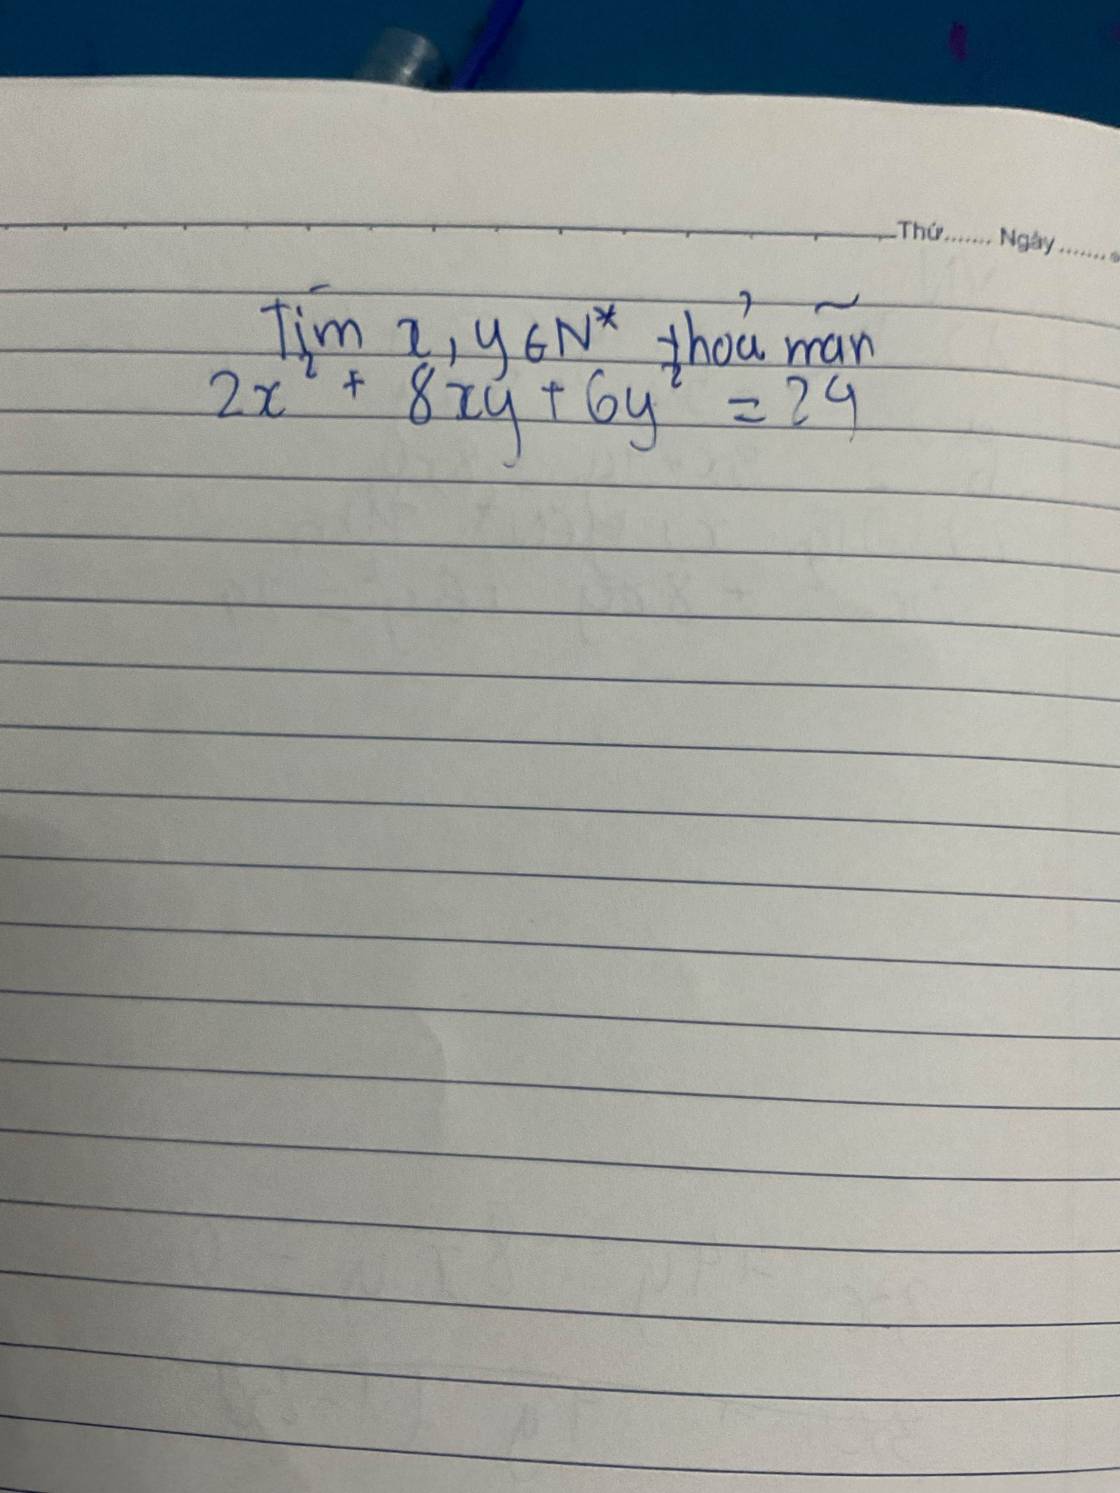 Thứ....... Ngày........
Tìm x, y ∈ N* thỏa mãn
2x² + 8xy + 6y² = 24